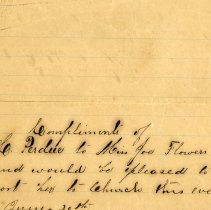 Compliments of
C. Perdue to Miss Joe Flowers
and would be pleased to
ort her to Church this eve
June 20th